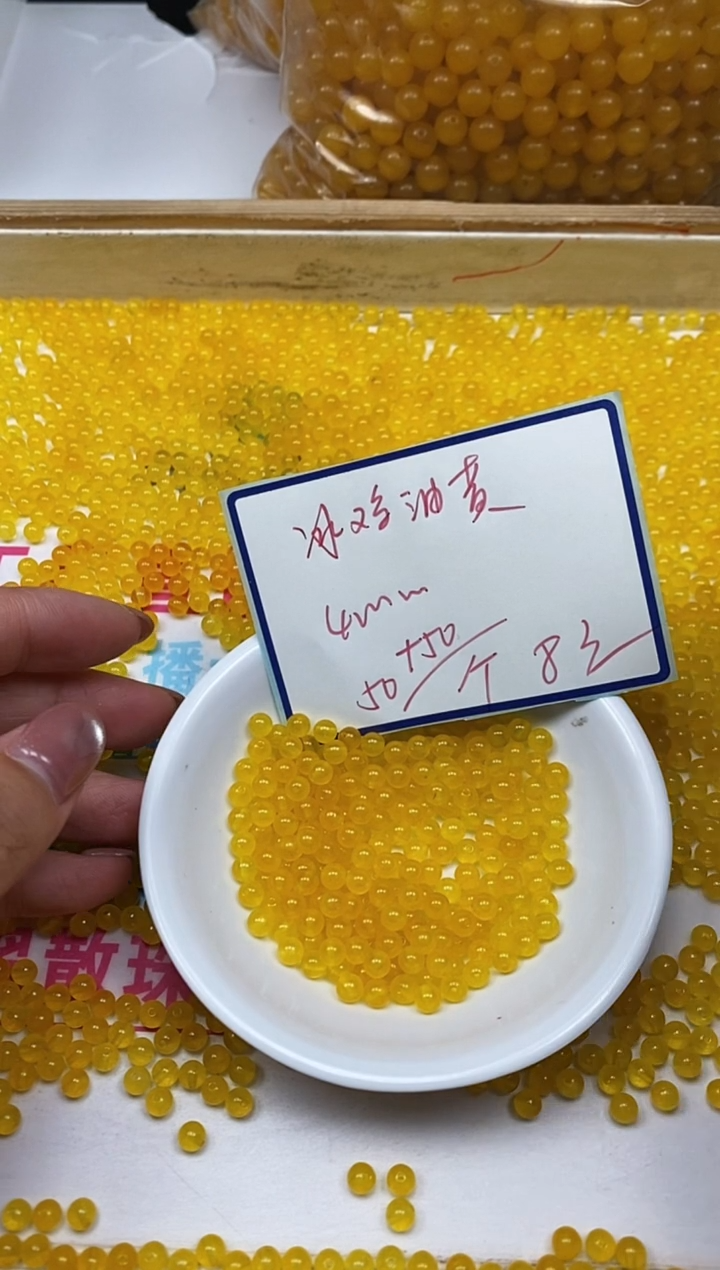 冰鸡油黄
4mm
50+50个 8元
播
散珠